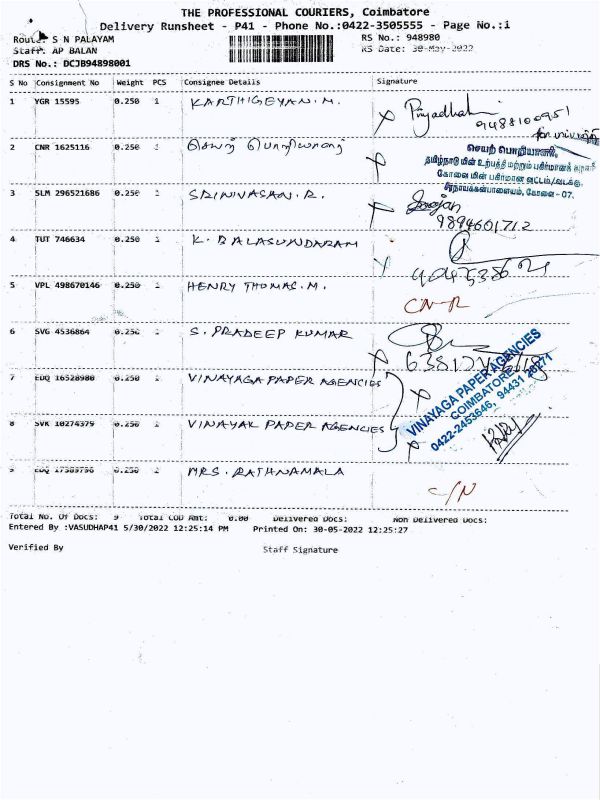 THE PROFESSIONAL COURIERS, Coimbatore
Delivery Runsheet - P41 - Phone No.:0422-3505555 - Page No.:i
Route: S N PALAYAM
RS No.: 948980
Staff: AP BALAN
RS Date: 30-May-2022
DRS No.: DCJB94898001
S No Consignment No Weight PCS Consignee Details Signature
1 YGR 15595 0.250 1 KARTHIGEYAN. M.
Priyadhah
9488100951
2 CNR 1625116 0.250 1 செயற் பொறியாளர்
செயற் பொறியாளர்,
தமிழ்நாடு மின் உற்பத்தி மற்றும் பகிர்மானக் கழகம்
கோவை மின் பகிர்மான வட்டம்/வடக்கு,
சீரநாயக்கன்பாளையம், கோவை - 07.
3 SLM 296521686 0.250 1 SRINIVASAN. R.
9894601712
4 TUT 746634 0.250 1 K. BALASUNDARAM
5 VPL 498670146 0.250 1 HENRY THOMAS. M.
CNR
6 SVG 4536864 0.250 1 S. PRADEEP KUMAR
7 EDQ 16528980 0.250 1 VINAYAGA PAPER AGENCIES
VINAYAGA PAPER AGENCIES
COIMBATORE
0422-2453646, 94431
8 SVK 10274379 0.250 1 VINAYAL PAPER AGENCIES
9 EDQ 0.250 1 MRS. RATHNAMALA
C/N
Total No. Of Docs: 9 Total COD Amt: 0.00 Delivered Docs: Non Delivered Docs:
Entered By :VASUDHAP41 5/30/2022 12:25:14 PM Printed On: 30-05-2022 12:25:27
Verified By Staff Signature